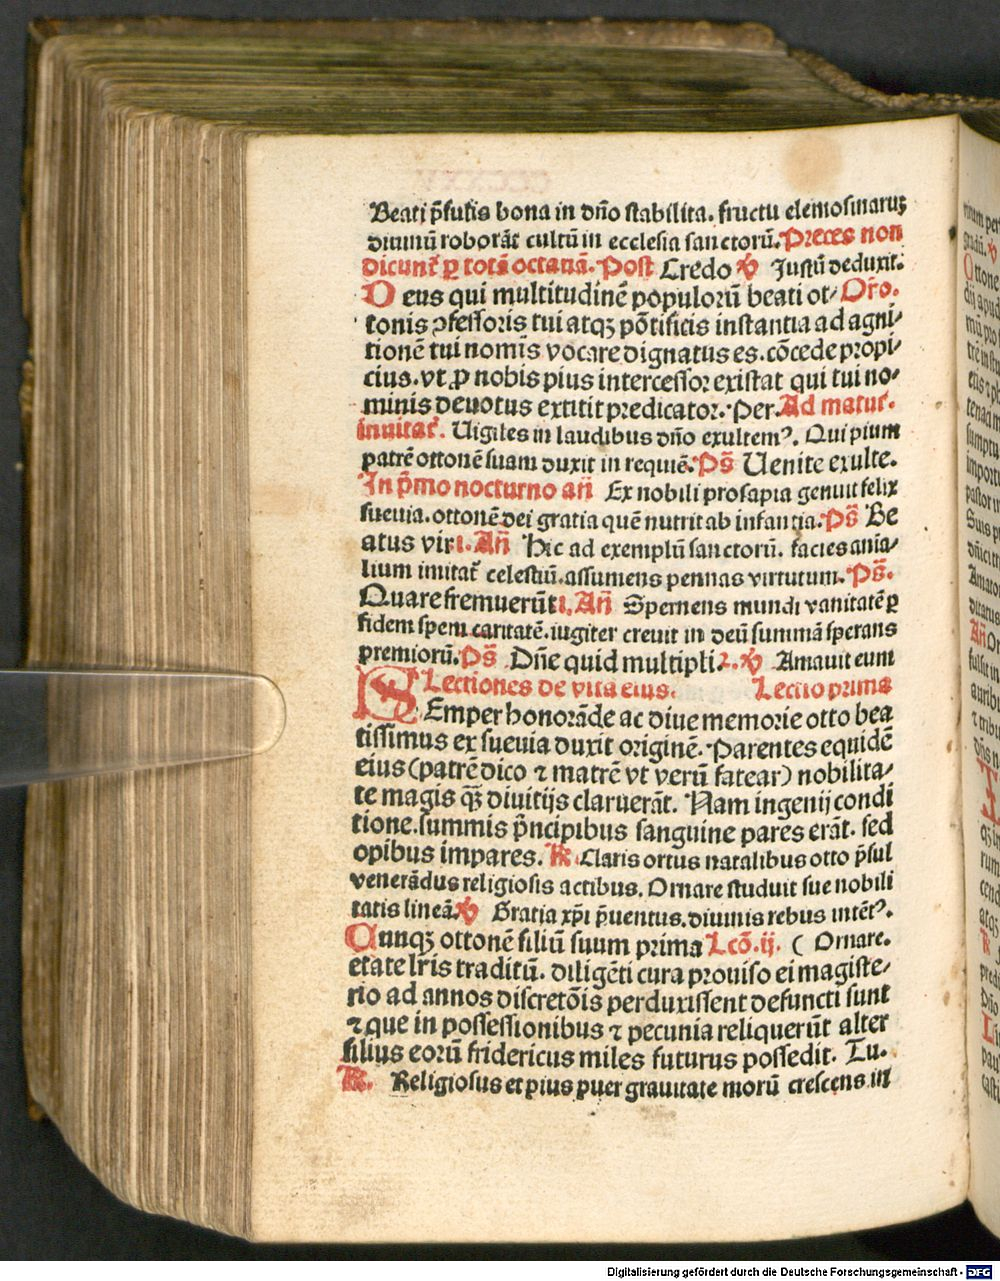 Beati p̄sulis bona in dn̄o stabilita. fructu elemosinaruꝫ
diuinū roborāt cultū in ecclesia sanctorū. Preces non
dicunt᷑ ꝑ totā octauā. Post Credo ℣ Justū deduxit.
Deus qui multitudinē populorū beati ot⸗ Or̄o.
tonis ꝯfessoris tui atqꝫ pōtificis instantia ad agni⸗
tionē tui nomīs vocare dignatus es. cōcede propi⸗
cius. vt ꝓ nobis pius intercessor existat qui tui no⸗
minis deuotus extitit predicator. Per. Ad matut᷑.
inuitat᷑. Uigiles in laudibus dn̄o exultemꝰ. Qui pium
patrē ottonē suam duxit in requiē. Ps̄ Uenite exulte.
In p̄mo nocturno an̄ Ex nobili prosapia genuit felix
sueuia. ottonē dei gratia quē nutrit ab infantia. Ps̄ Be
atus vir i. An̄ Hic ad exemplū sanctorū. facies ania⸗
lium imitat᷑ celestiū. assumens pennas virtutum. Ps̄.
Quare fremuerūt i. An̄ Spernens mundi vanitatē ꝑ
fidem spem caritatē. iugiter creuit in deū summā sperans
premiorū. Ps̄ Dn̄e quid multipli 2. ℣ Amauit eum
Lectiones de vita eius. Lectio prima
SEmper honorāde ac diue memorie otto bea
tissimus ex sueuia duxit originē. Parentes equidē
eius (patrē dico ⁊ matrē vt verū fatear) nobilita⸗
te magis qꝫ̄ diuitijs claruerāt. Nam ingenij condi
tione. summis p̄ncipibus sanguine pares erāt. sed
opibus impares. ℟ Claris ortus natalibus otto p̄sul
venerādus religiosis actibus. Ornare studuit sue nobili
tatis lineā ℣ Gratia xp̄i p̄uentus. diuinis rebus intētꝰ.
Cunqꝫ ottonē filiū suum prima Lcō. ij. ( Ornare.
etate lr̄is traditū. diligēti cura prouiso ei magiste⸗
rio ad annos discretōis perduxissent defuncti sunt
⁊ que in possessionibus ⁊ pecunia reliquerūt alter
filius eorū fridericus miles futurus possedit. Tu.
℟. Religiosus et pius puer grauitate morū crescens in
Digitalisierung gefördert durch die Deutsche Forschungsgemeinschaft - DFG